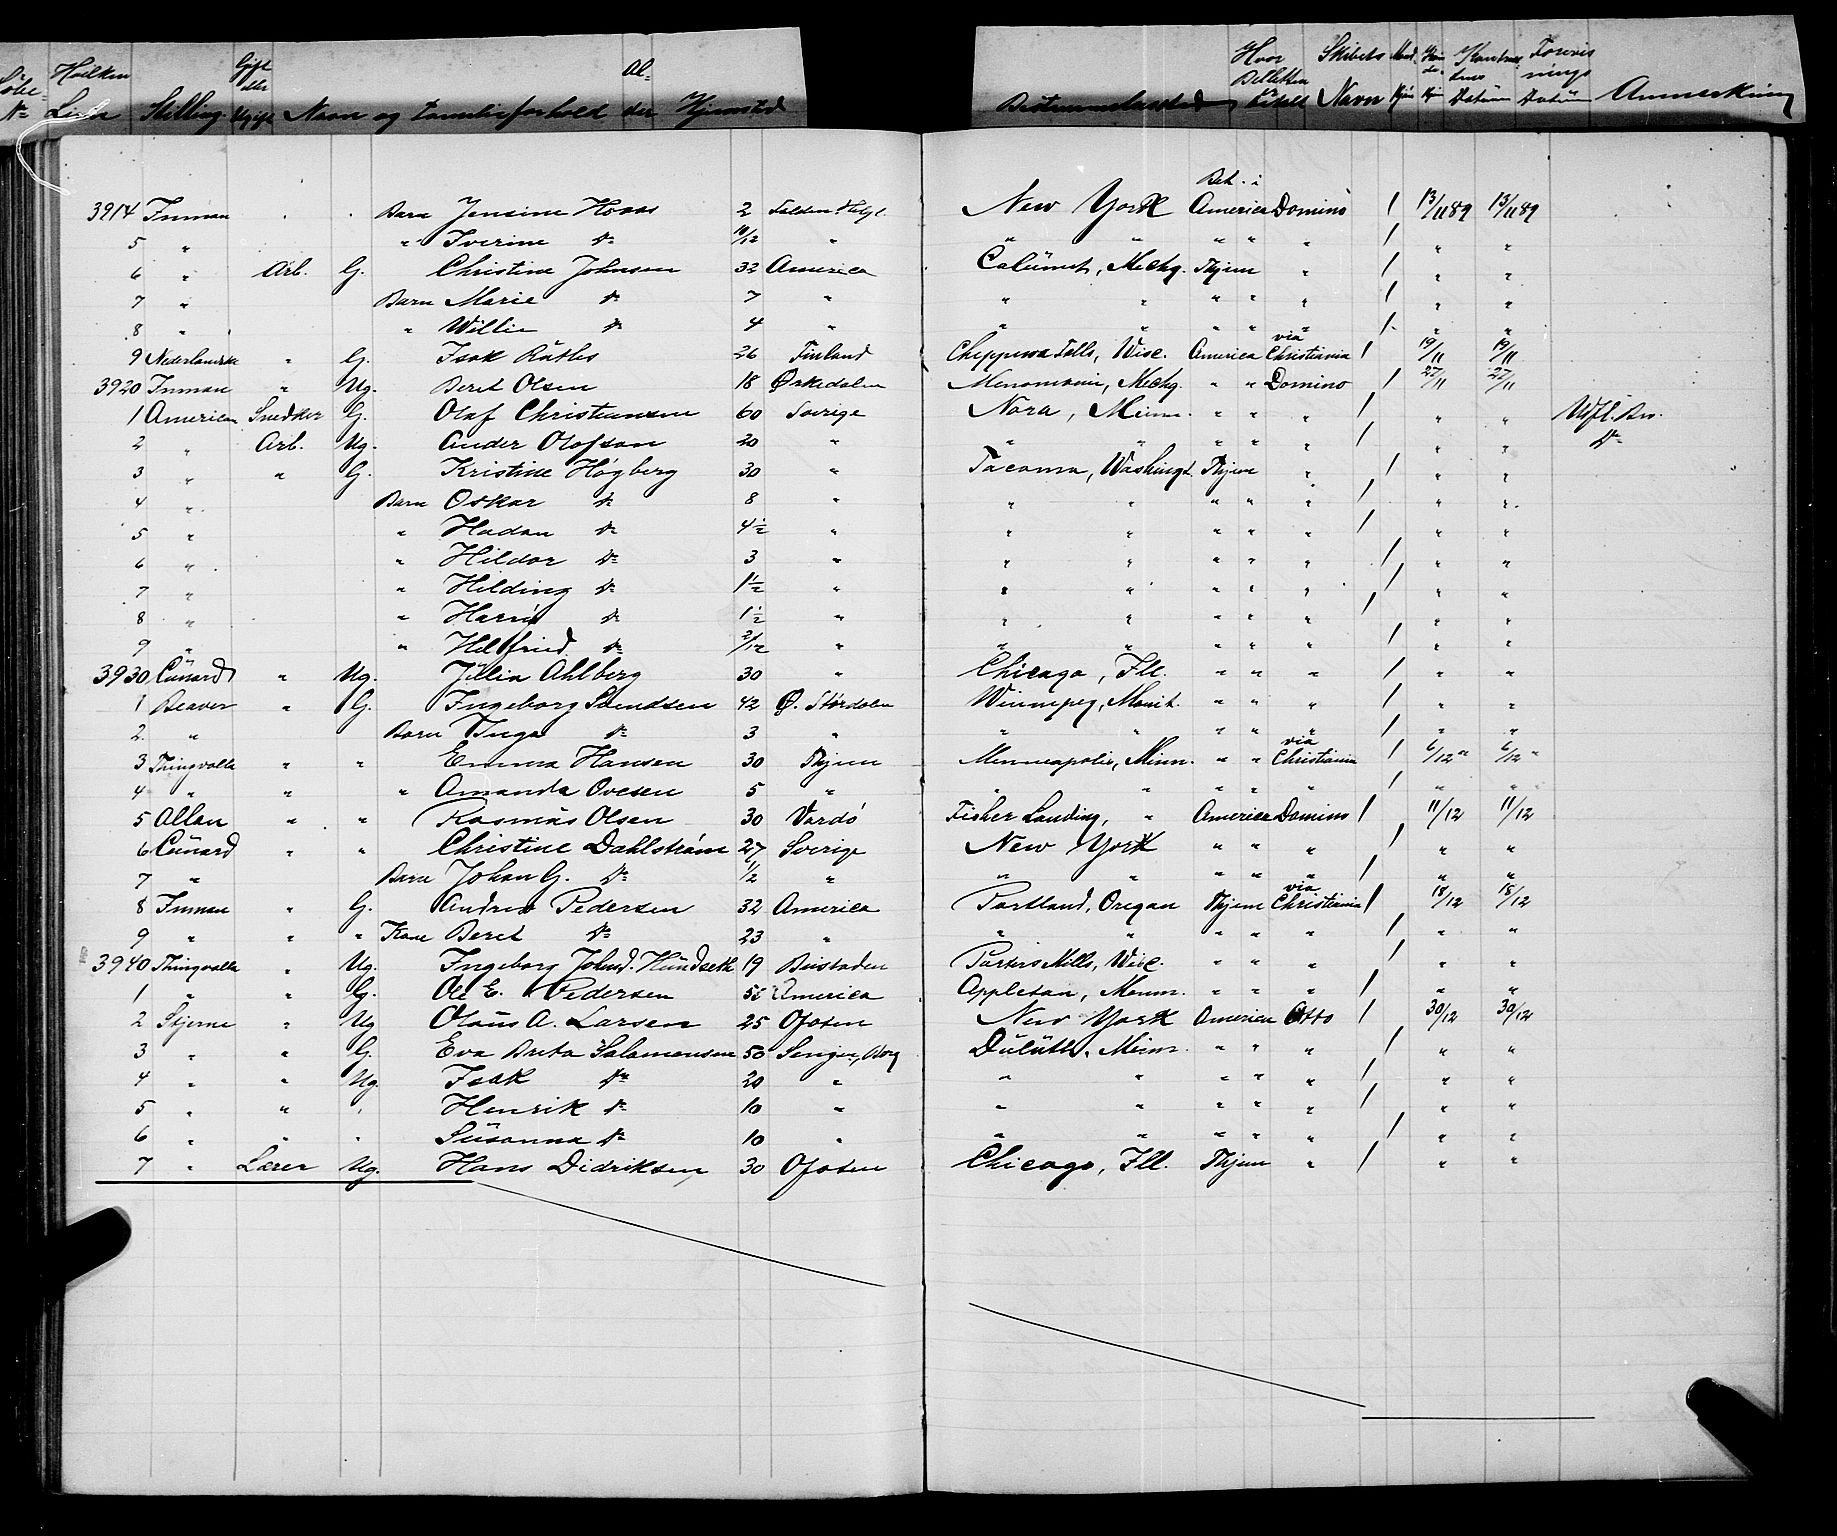 Løbe- No Hvilken Linie Stilling Gift eller Ugift Navn og Familieforhold Al- der Hjemsted Bestemmelsessted Hvor Billetten er betalt Skibets Navn Mand- kjøn Kvin- de- kj. Kontrac- tens Datum Forevis- nings Datum Anmerkning
3914 Inman " " Barn Jensine Hovas 2 Salden Helgl. New York Bet. i America Domino / 13/11 89 13/11 89
5 " " Iverine Do 10/12 " " " " " " / " "
6 " Arb. G. Christine Johnsen 32 America Calumet, Mechg. Thjem " / " "
7 " Barn Marie Do 7 " " " " " " / " "
8 " " Willie Do 4 " " " " " " / " "
9 Nederlandsk " G. Isak Ruths 26 Finland Cheppewa Falls, Wisc. America via Christiania / 19/11 19/11
3920 Inman " Ug. Beret Olsen 18 Ørkedalen Menomonie, Mechg. " " Domino / 27/11 27/11
1 American Snedker G. Olaf Christiansen 60 Sverige Nora, Minn. " " " / " "
2 " Arb. Ug. Ander Olofson 20 " " " " " " / " " Do
3 " " G. Kristine Högberg 30 " Tacoma, Washingt. Thjem " / " "
4 " Barn Oskar Do 8 " " " " " " / " "
5 " " Hadan Do 4½ " " " " " " / " "
6 " " Hildor Do 3 " " " " " " / " "
7 " " Hilding Do 1½ " " " " " " / " "
8 " " Do 1½ " " " " " " / " "
9 " " Helfried Do 2/12 " " " " " " / " "
3930 Cunard " Ug. Julia Ahlberg 30 " Chicago, Ill. " " " / " "
1 Beaver " G. Ingeborg Svendsen 42 Ø. Stördalen Winnepeg, Manit. " " " / " "
2 " Barn Inga Do 3 " " " " " " / " "
3 Thingvalla " " Emma Hansen 30 Thjem Minneapolis, Minn. " " via Christiania / 6/12 " 6/12 "
4 " " " Amanda Ovesen 5 " " " " " " / " "
5 Allan " " Rasmus Olsen 30 Vardö Fisher Landing, " America Domino / 11/12 11/12
6 Cunard " " Christine Dahlström 27 Sverige New York " " " / " "
7 " Barn Johan G. Do 1/2 " " " " " " / " "
8 Inman " G. Andrew Pedersen 32 America Portland, Oregan Thjem via Christiania / 18/12 18/12
9 " " " Kone Beret Do 23 " " " " " " / " "
3940 Thingvalla " Ug. Ingeborg Johnd. Hundseth 19 Bustaden Porters Mills, Wisc. " " " / " "
1 " " G. Ole E. Pedersen 55 America Appleton, Menn. " " " / " "
2 Stjerne " Ug Olaus A. Larsen 25 Ofoten New York America Otto / 30/12 30/12
3 " " G. Eva Breta Salamonsen 50 Senjen, Berg Duluth, Minn. " " " / " "
4 " " Ug. Isak Do 20 " " " " " " / " "
5 " " " Henrik Do 10 " " " " " " / " "
6 " " " Susanna Do 10 " " " " " " / " "
7 " Lærer Ug. Hans Didriksen 30 Ofoten Chicago, Ill. Thjem " / " "